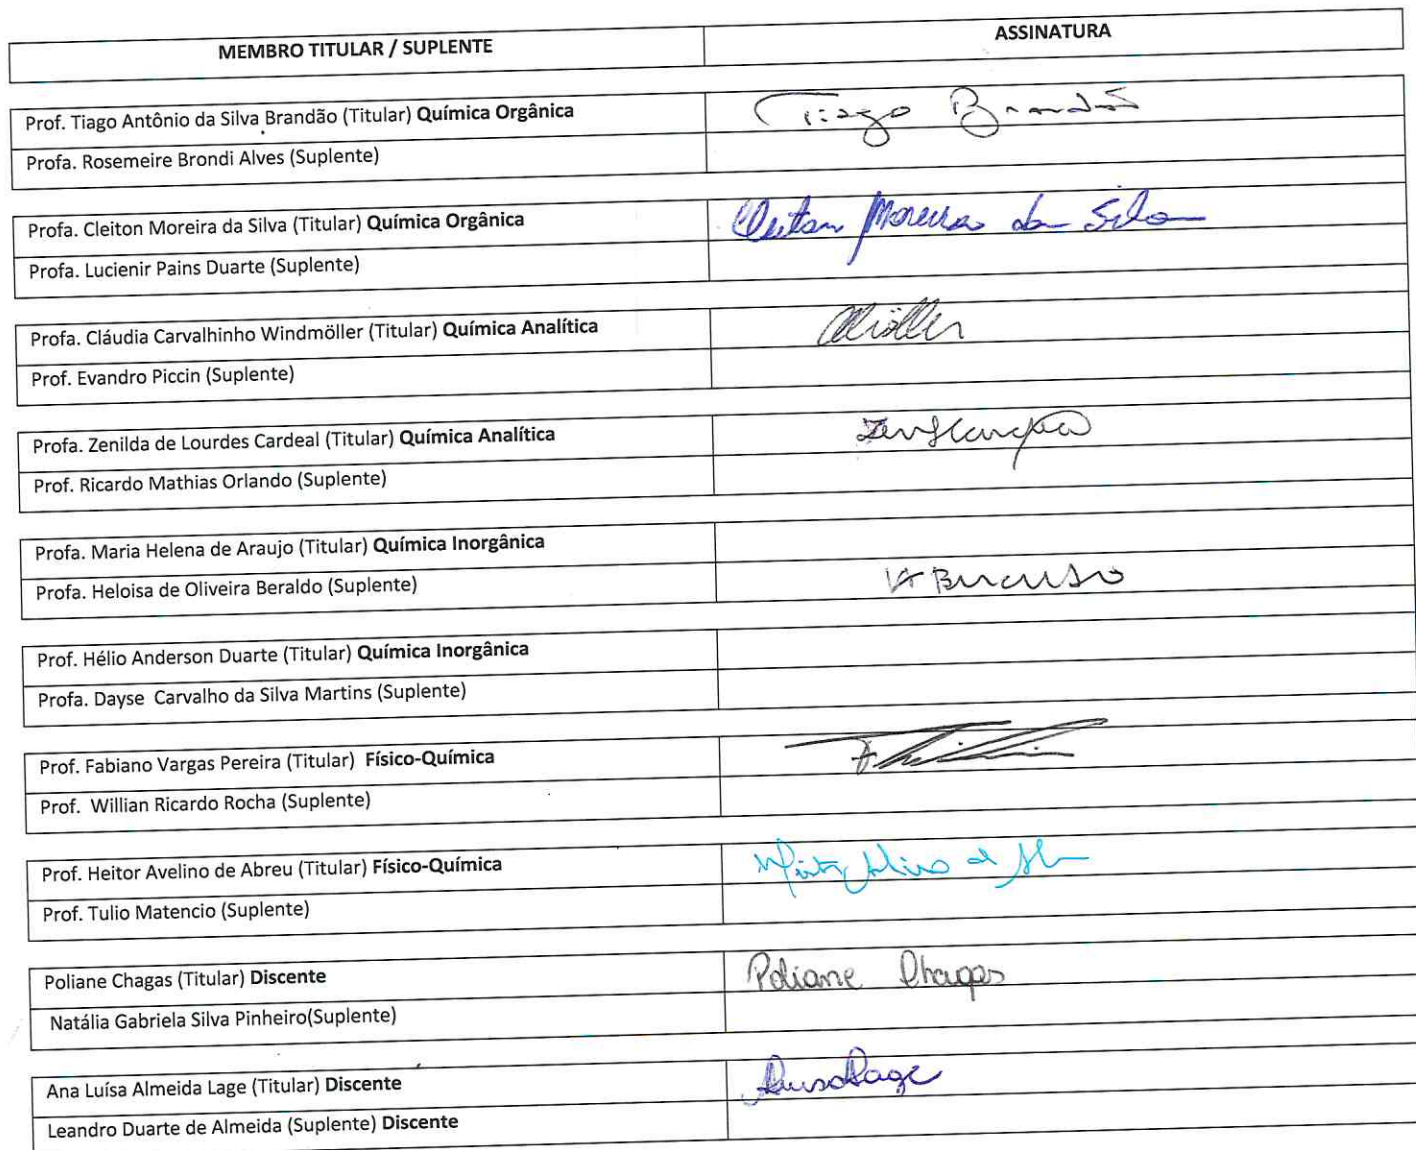 MEMBRO TITULAR / SUPLENTE ASSINATURA
Prof. Tiago Antônio da Silva Brandão (Titular) Química Orgânica Tiago Brandão
Profa. Rosemeire Brondi Alves (Suplente)
Profa. Cleiton Moreira da Silva (Titular) Química Orgânica Cleiton Moreira da Silva
Profa. Lucienir Pains Duarte (Suplente)
Profa. Cláudia Carvalhinho Windmöller (Titular) Química Analítica
Prof. Evandro Piccin (Suplente)
Profa. Zenilda de Lourdes Cardeal (Titular) Química Analítica
Prof. Ricardo Mathias Orlando (Suplente)
Profa. Maria Helena de Araujo (Titular) Química Inorgânica
Profa. Heloisa de Oliveira Beraldo (Suplente)
Prof. Hélio Anderson Duarte (Titular) Química Inorgânica
Profa. Dayse Carvalho da Silva Martins (Suplente)
Prof. Fabiano Vargas Pereira (Titular) Físico-Química
Prof. Willian Ricardo Rocha (Suplente)
Prof. Heitor Avelino de Abreu (Titular) Físico-Química
Prof. Tulio Matencio (Suplente)
Poliane Chagas (Titular) Discente Poliane Chagas
Natália Gabriela Silva Pinheiro(Suplente)
Ana Luísa Almeida Lage (Titular) Discente
Leandro Duarte de Almeida (Suplente) Discente